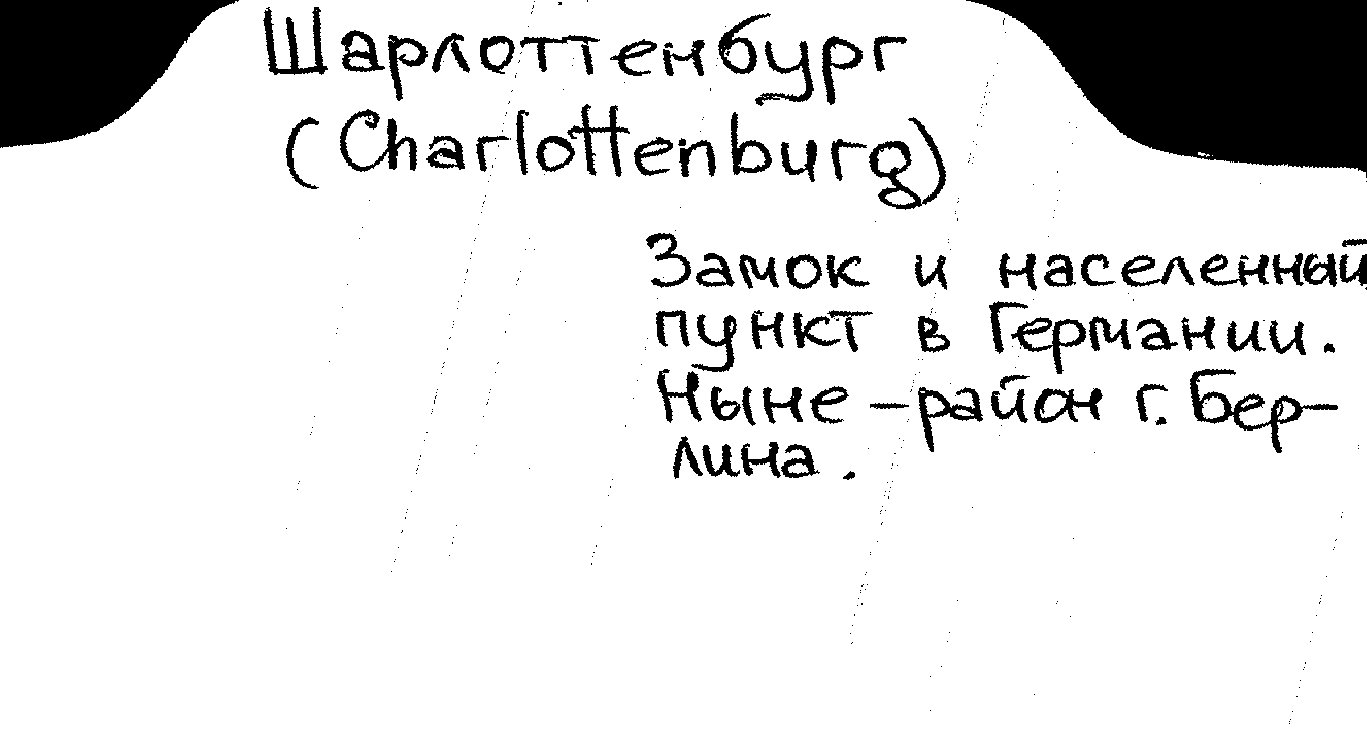 Шарлоттенбург
(Charlottenburg)
Замок и населенный
пункт в Германии.
Ныне – район г. Бер-
лина.